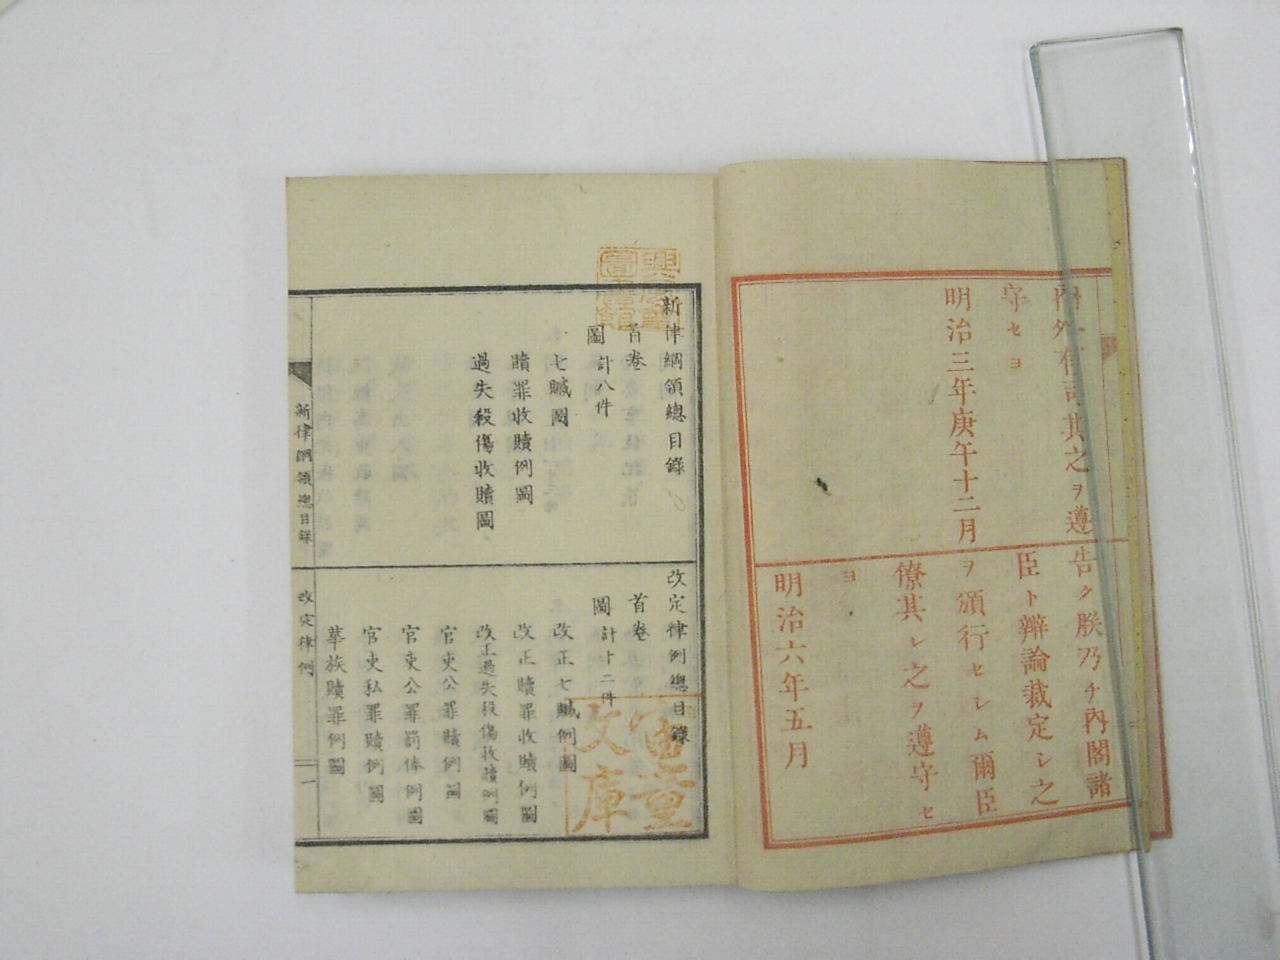 內外有司其之ヲ遵
守セヨ
明治三年庚午十二月
告ク朕乃チ內閣諸
臣ト辯論裁定シ之
ヲ頒行セシム爾臣
僚其レ之ヲ遵守セ
ヨ
明治六年五月
新律綱領總目錄
首卷
圖計八件
七贓圖
贖罪收贖例圖
過失殺傷收贖圖
新律綱領總目錄
改定律例總目錄
首卷
圖計十二件
改正七贓例圖
改正贖罪收贖例圖
改正過失殺傷收贖例圖
官吏公罪贖例圖
官吏公罪罰俸例圖
官吏私罪贖例圖
華族贖罪例圖
改定律例
一
文庫